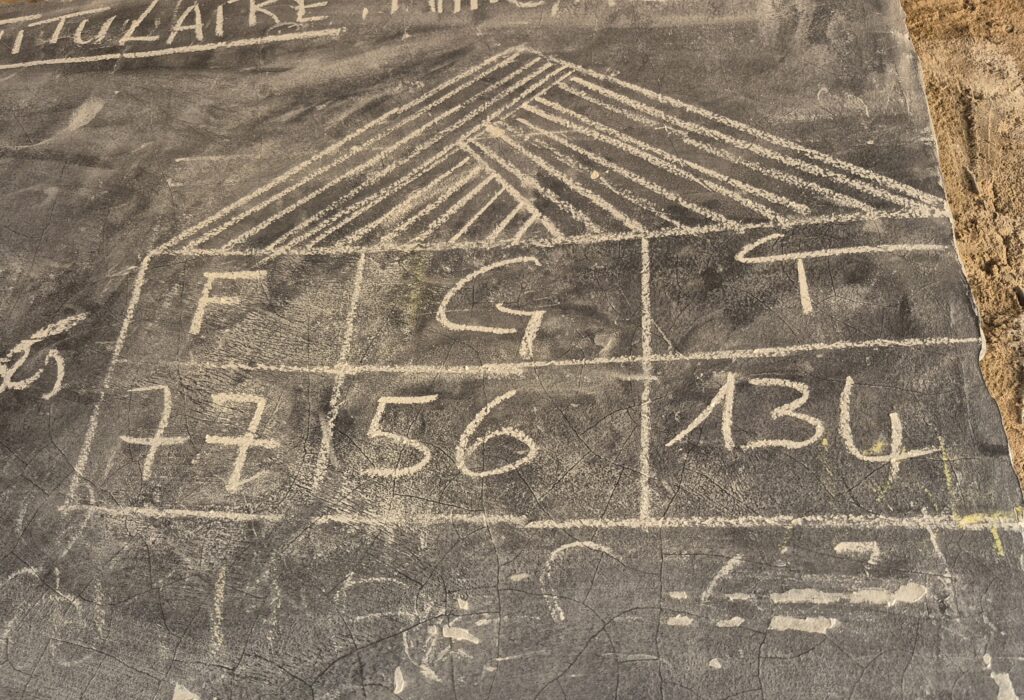 TITULAIRE
F G T
77 56 134